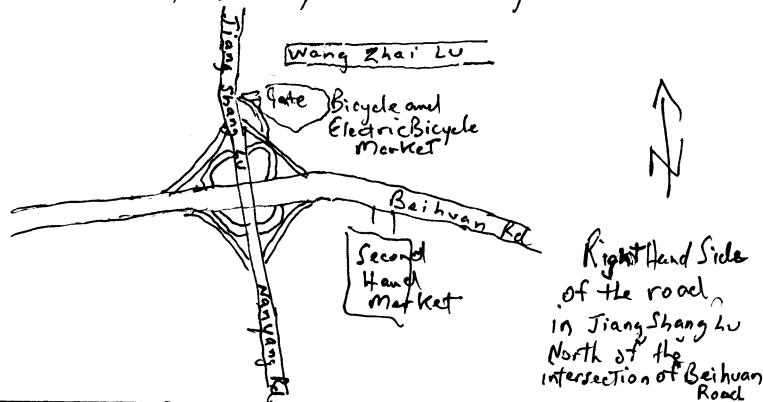 Jiang Shang Lu
Wang Zhai Lu
Gate
Bicycle and
Electric Bicycle
Market
Beihuan Rd
Second
Hand
Market
Nanyang Rd
N
Right Hand Side
of the road,
in Jiang Shang Lu
North of the
intersection of Beihuan
Road